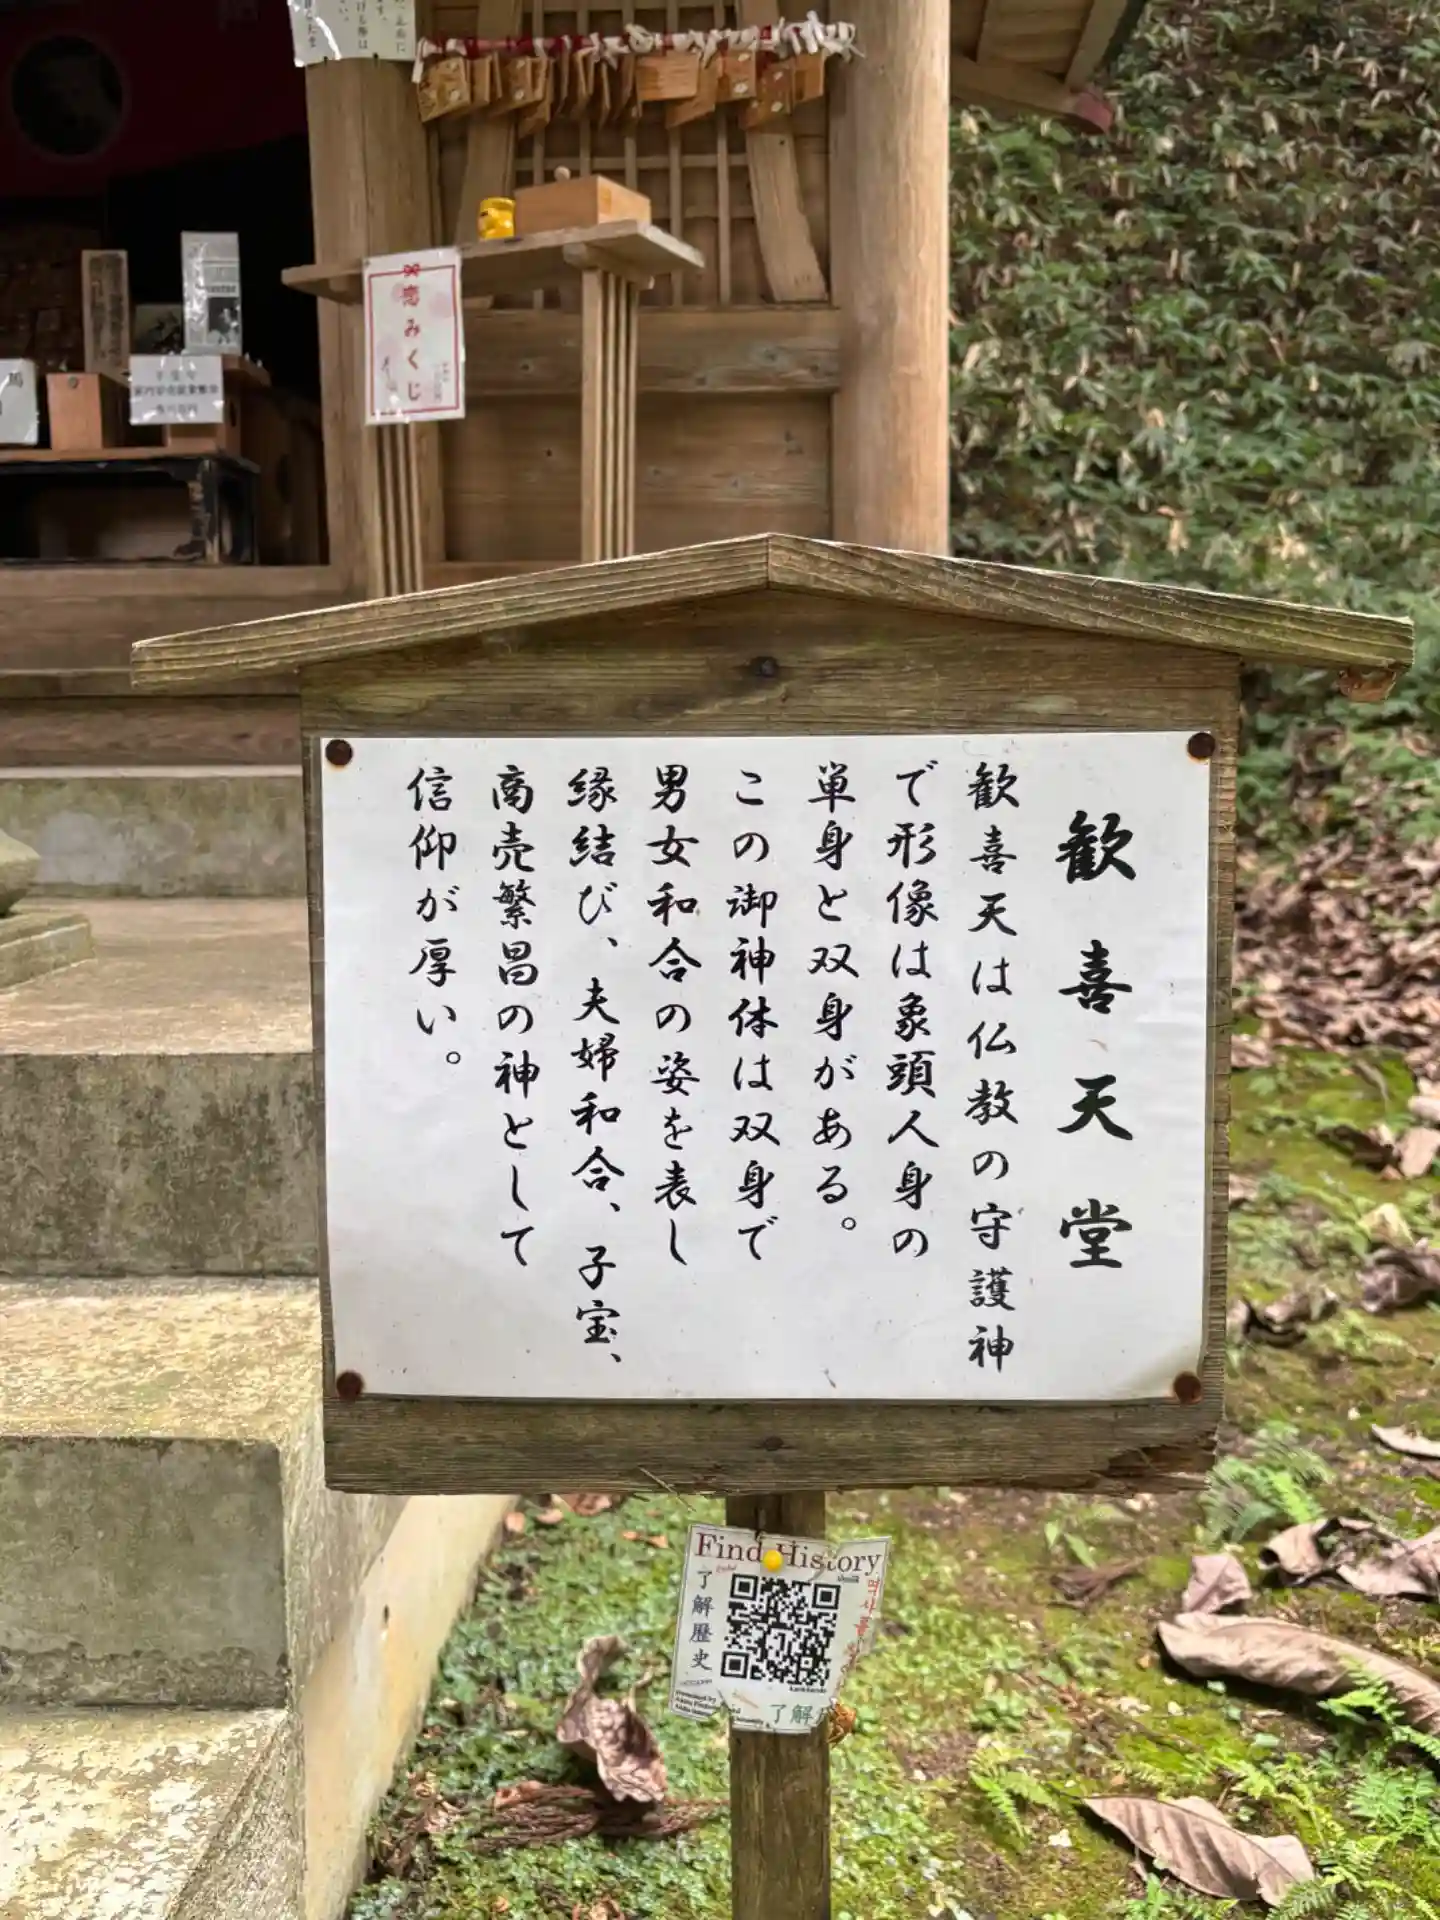 恋みくじ
歓喜天堂
歓喜天は仏教の守護神
で形像は象頭人身の
単身と双身がある。
この御神体は双身で
男女和合の姿を表し
縁結び、夫婦和合、子宝、
商売繁昌の神として
信仰が厚い。
Find History
了解歴史
了解